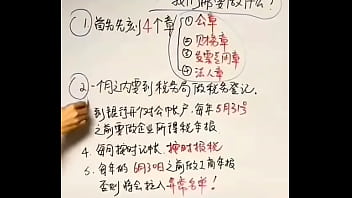 我们都要做什么?
① 首先先刻4个章 ① 公章
② 财务章
③ 发票专用章
④ 法人章
② 一个月之内要到税务局做税务登记.
到银行开对公帐户.每年5月31号
之前要做企业所得税年报
4. 每月按时记帐.按时报税
5. 每年的6月30日之前做工商年报
否则将会拉入异常名单!